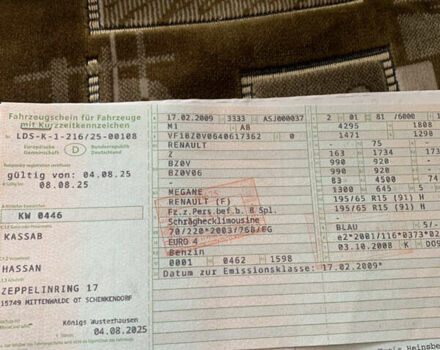 Fahrzeugschein für Fahrzeuge
mit Kurzzeitkennzeichen
LDS-K-1-216/25-00108
Europäische Gemeinschaft D Bundesrepublik Deutschland
gültig von: 04.08.25
08.08.25
KW 0446
KASSAB
HASSAN
ZEPPELINRING 17
15749 MITTENWALDE OT SCHENKENDORF
Königs Wusterhausen
04.08.2025
17.02.2009 3333 ASJ000037
M1 AB
VF1BZ0V0640617362 0
RENAULT
Z
BZ0V
BZ0V06
-
MEGANE
RENAULT (F)
Fz.z.Pers.bef.b. 8 Spl.
Schräghecklimousine
70/220*2003/76B/EG
EURO 4
Benzin
0001 0462 1598
Datum zur Emissionsklasse: 17.02.2009*
2 01 81 /6000
4295 1808
1471 1290
75
163 1734
990 920 -
990 920 -
83 4500 74
1300 645 5
195/65 R15 (91) H
195/65 R15 (91) H
-
BLAU 5/-
e2*2001/116*0373*02
03.10.2008 K